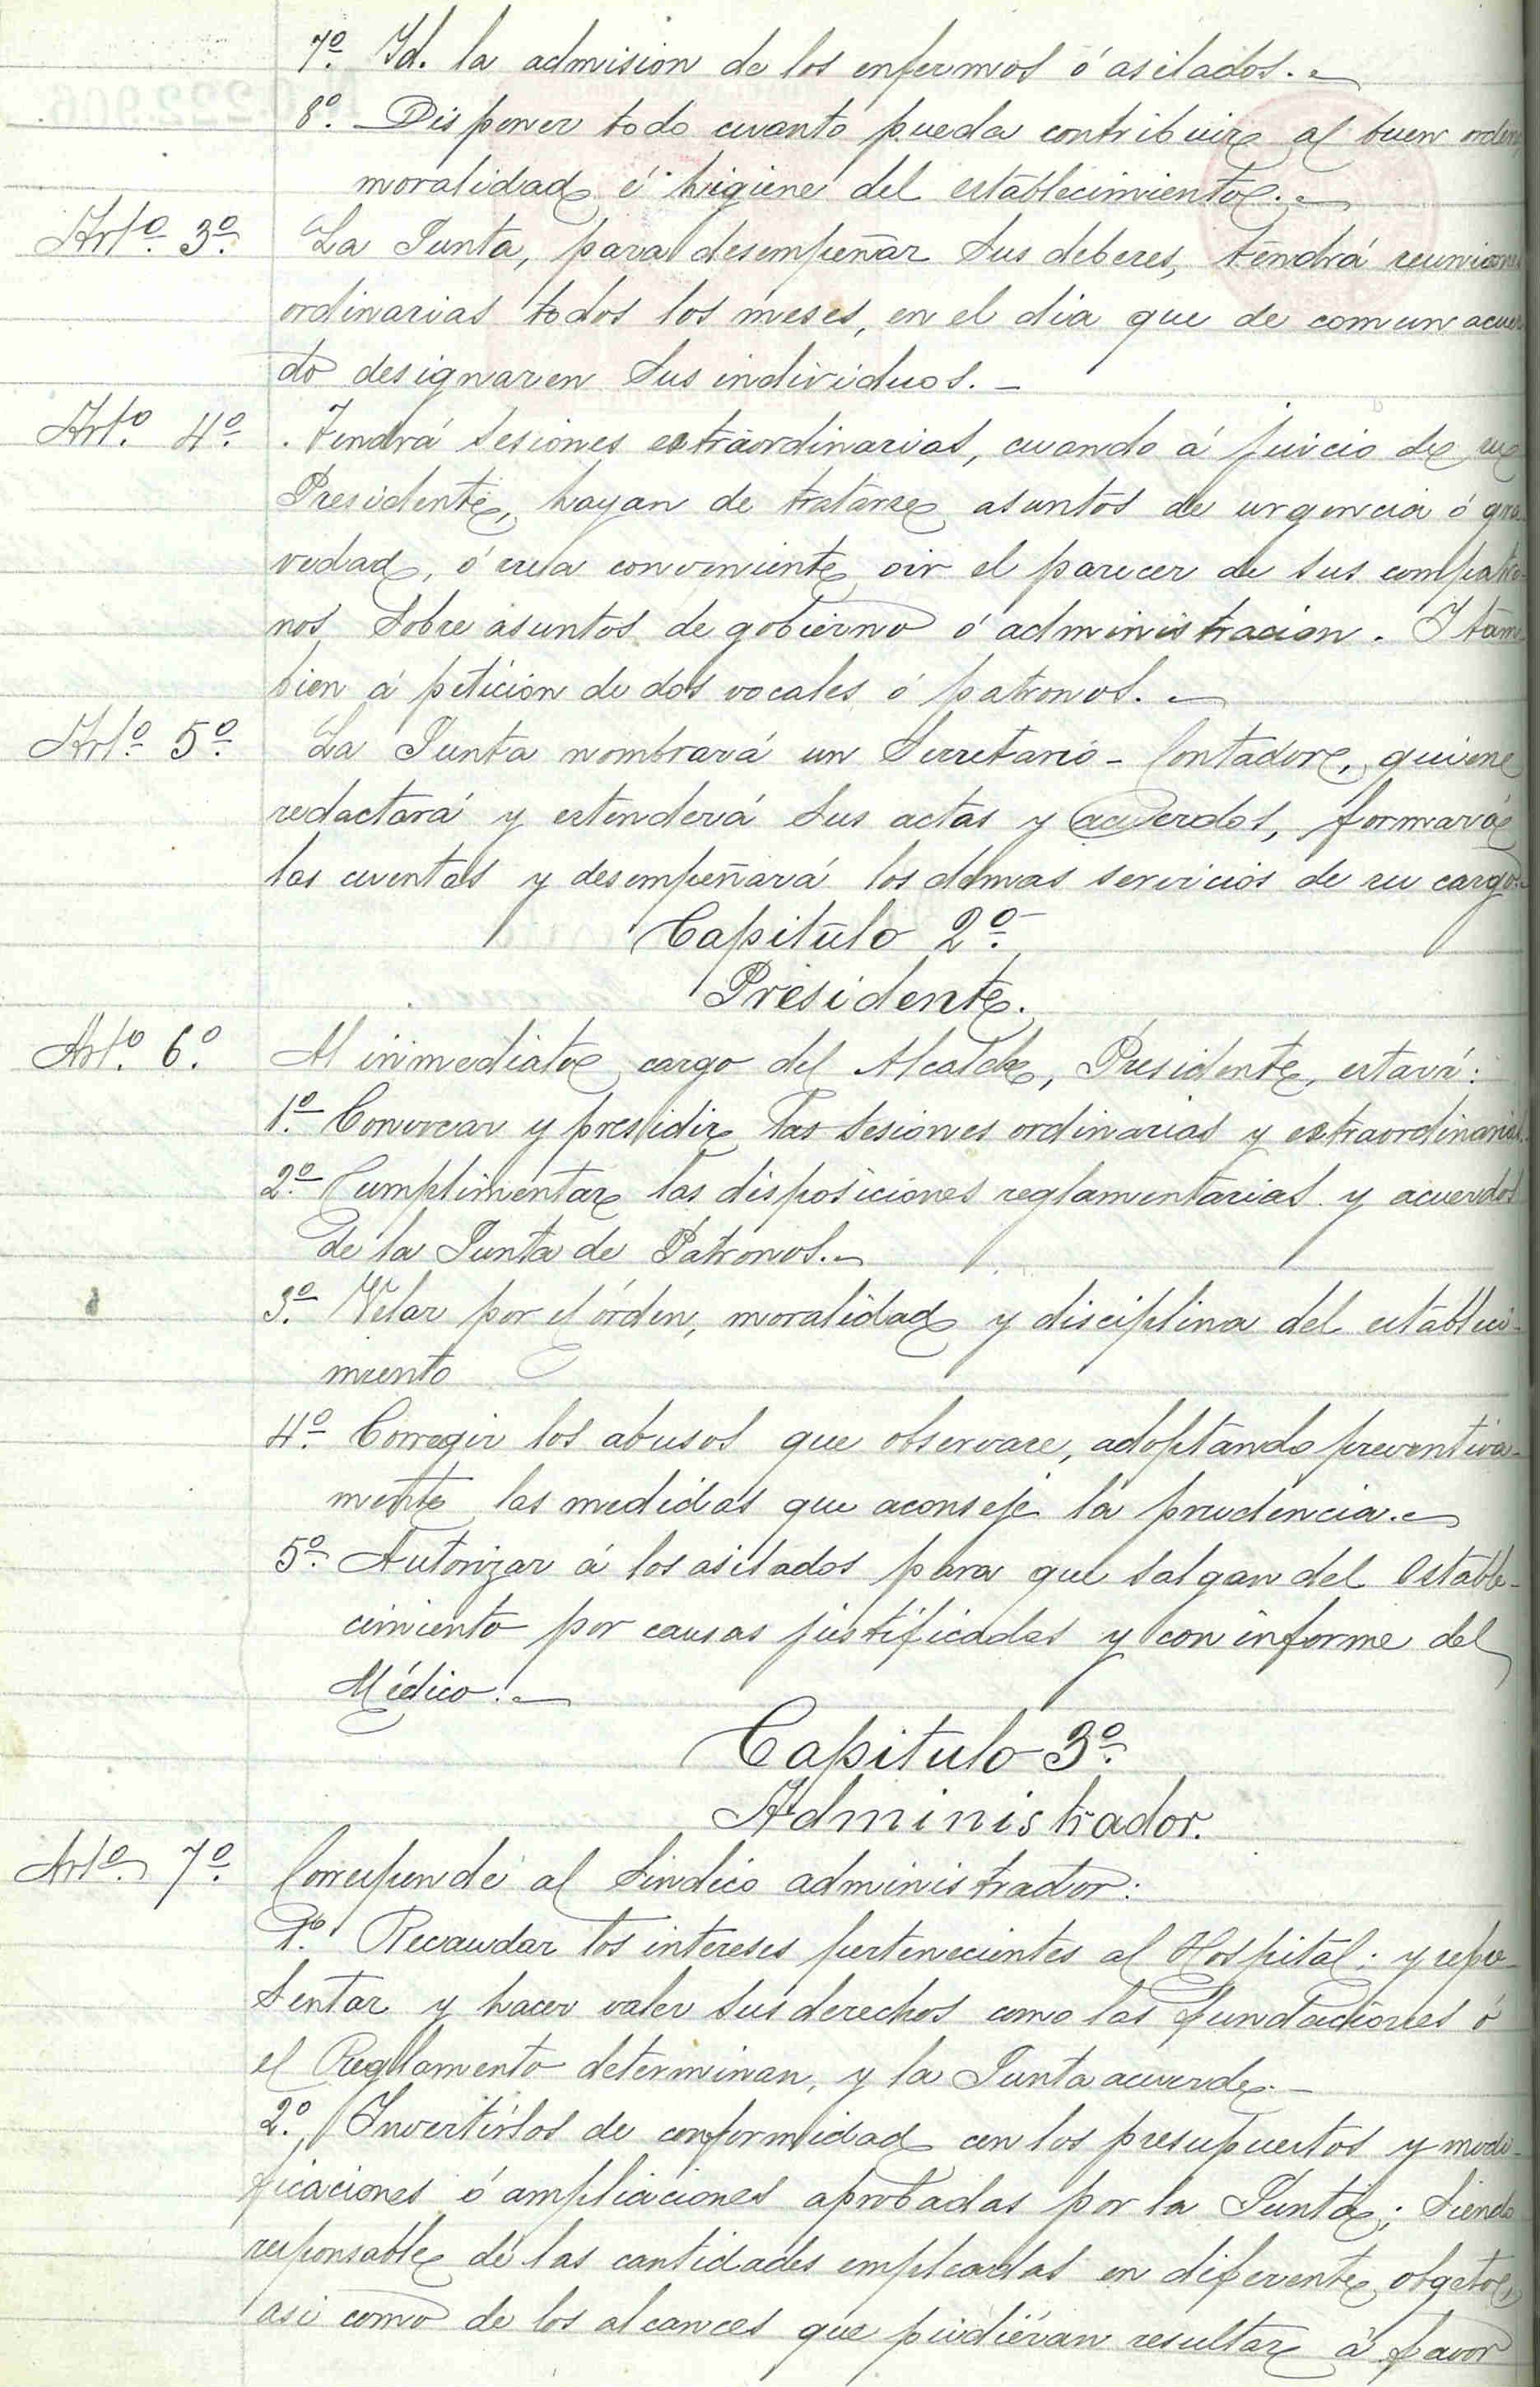 7º. Id. la admision de los enfermos ó asilados.
8º. Disponer todo cuanto pueda contribuir al buen orden,
moralidad é higiene del establecimiento.
Artº. 3º. La Junta, para desempeñar sus deberes, tendrá reuniones
ordinarias todos los meses, en el dia que de comun acuer
do designaren sus individuos.
Artº. 4º. Tendrá sesiones extraordinarias, cuando á juicio de su
Presidente, hayan de tratarse asuntos de urgencia ó gra
vedad, ó crea conveniente oir el parecer de sus compatro-
nos sobre asuntos de gobierno ó administracion. I tam-
bien á peticion de dos vocales ó patronos.
Artº. 5º. La Junta nombrará un Secretario-Contador, quien
redactará y estenderá sus actas y acuerdos, formará
las cuentas y desempeñará los demas servicios de su cargo.
Capitulo 2º.
Presidente.
Artº. 6º. Al inmediato cargo del Alcalde, Presidente, estará:
1º. Convocar y presidir las sesiones ordinarias y extraordinarias.
2º. Cumplimentar las disposiciones reglamentarias y acuerdos
de la Junta de Patronos.
3º. Velar por el órden, moralidad y disciplina del estableci-
miento
4º. Corregir los abusos que observare, adoptando preventiva-
mente las medidas que aconseje la prudencia.
5º. Autorizar á los asilados para que salgan del Estable-
cimiento por causas justificadas y con informe del
Médico.
Capitulo 3º.
Administrador.
Artº. 7º. Corresponde al Sindico administrador:
1º. Recaudar los intereses pertenecientes al Hospital; y repre-
sentar y hacer valer sus derechos como las fundaciones ó
el Reglamento determinan, y la Junta acuerde.
2º. Invertirlos de conformidad con los presupuestos y modi-
ficaciones ó ampliaciones aprobadas por la Junta; siendo
responsable de las cantidades empleadas en diferente obgeto,
asi como de los alcances que pudiéran resultar á favor